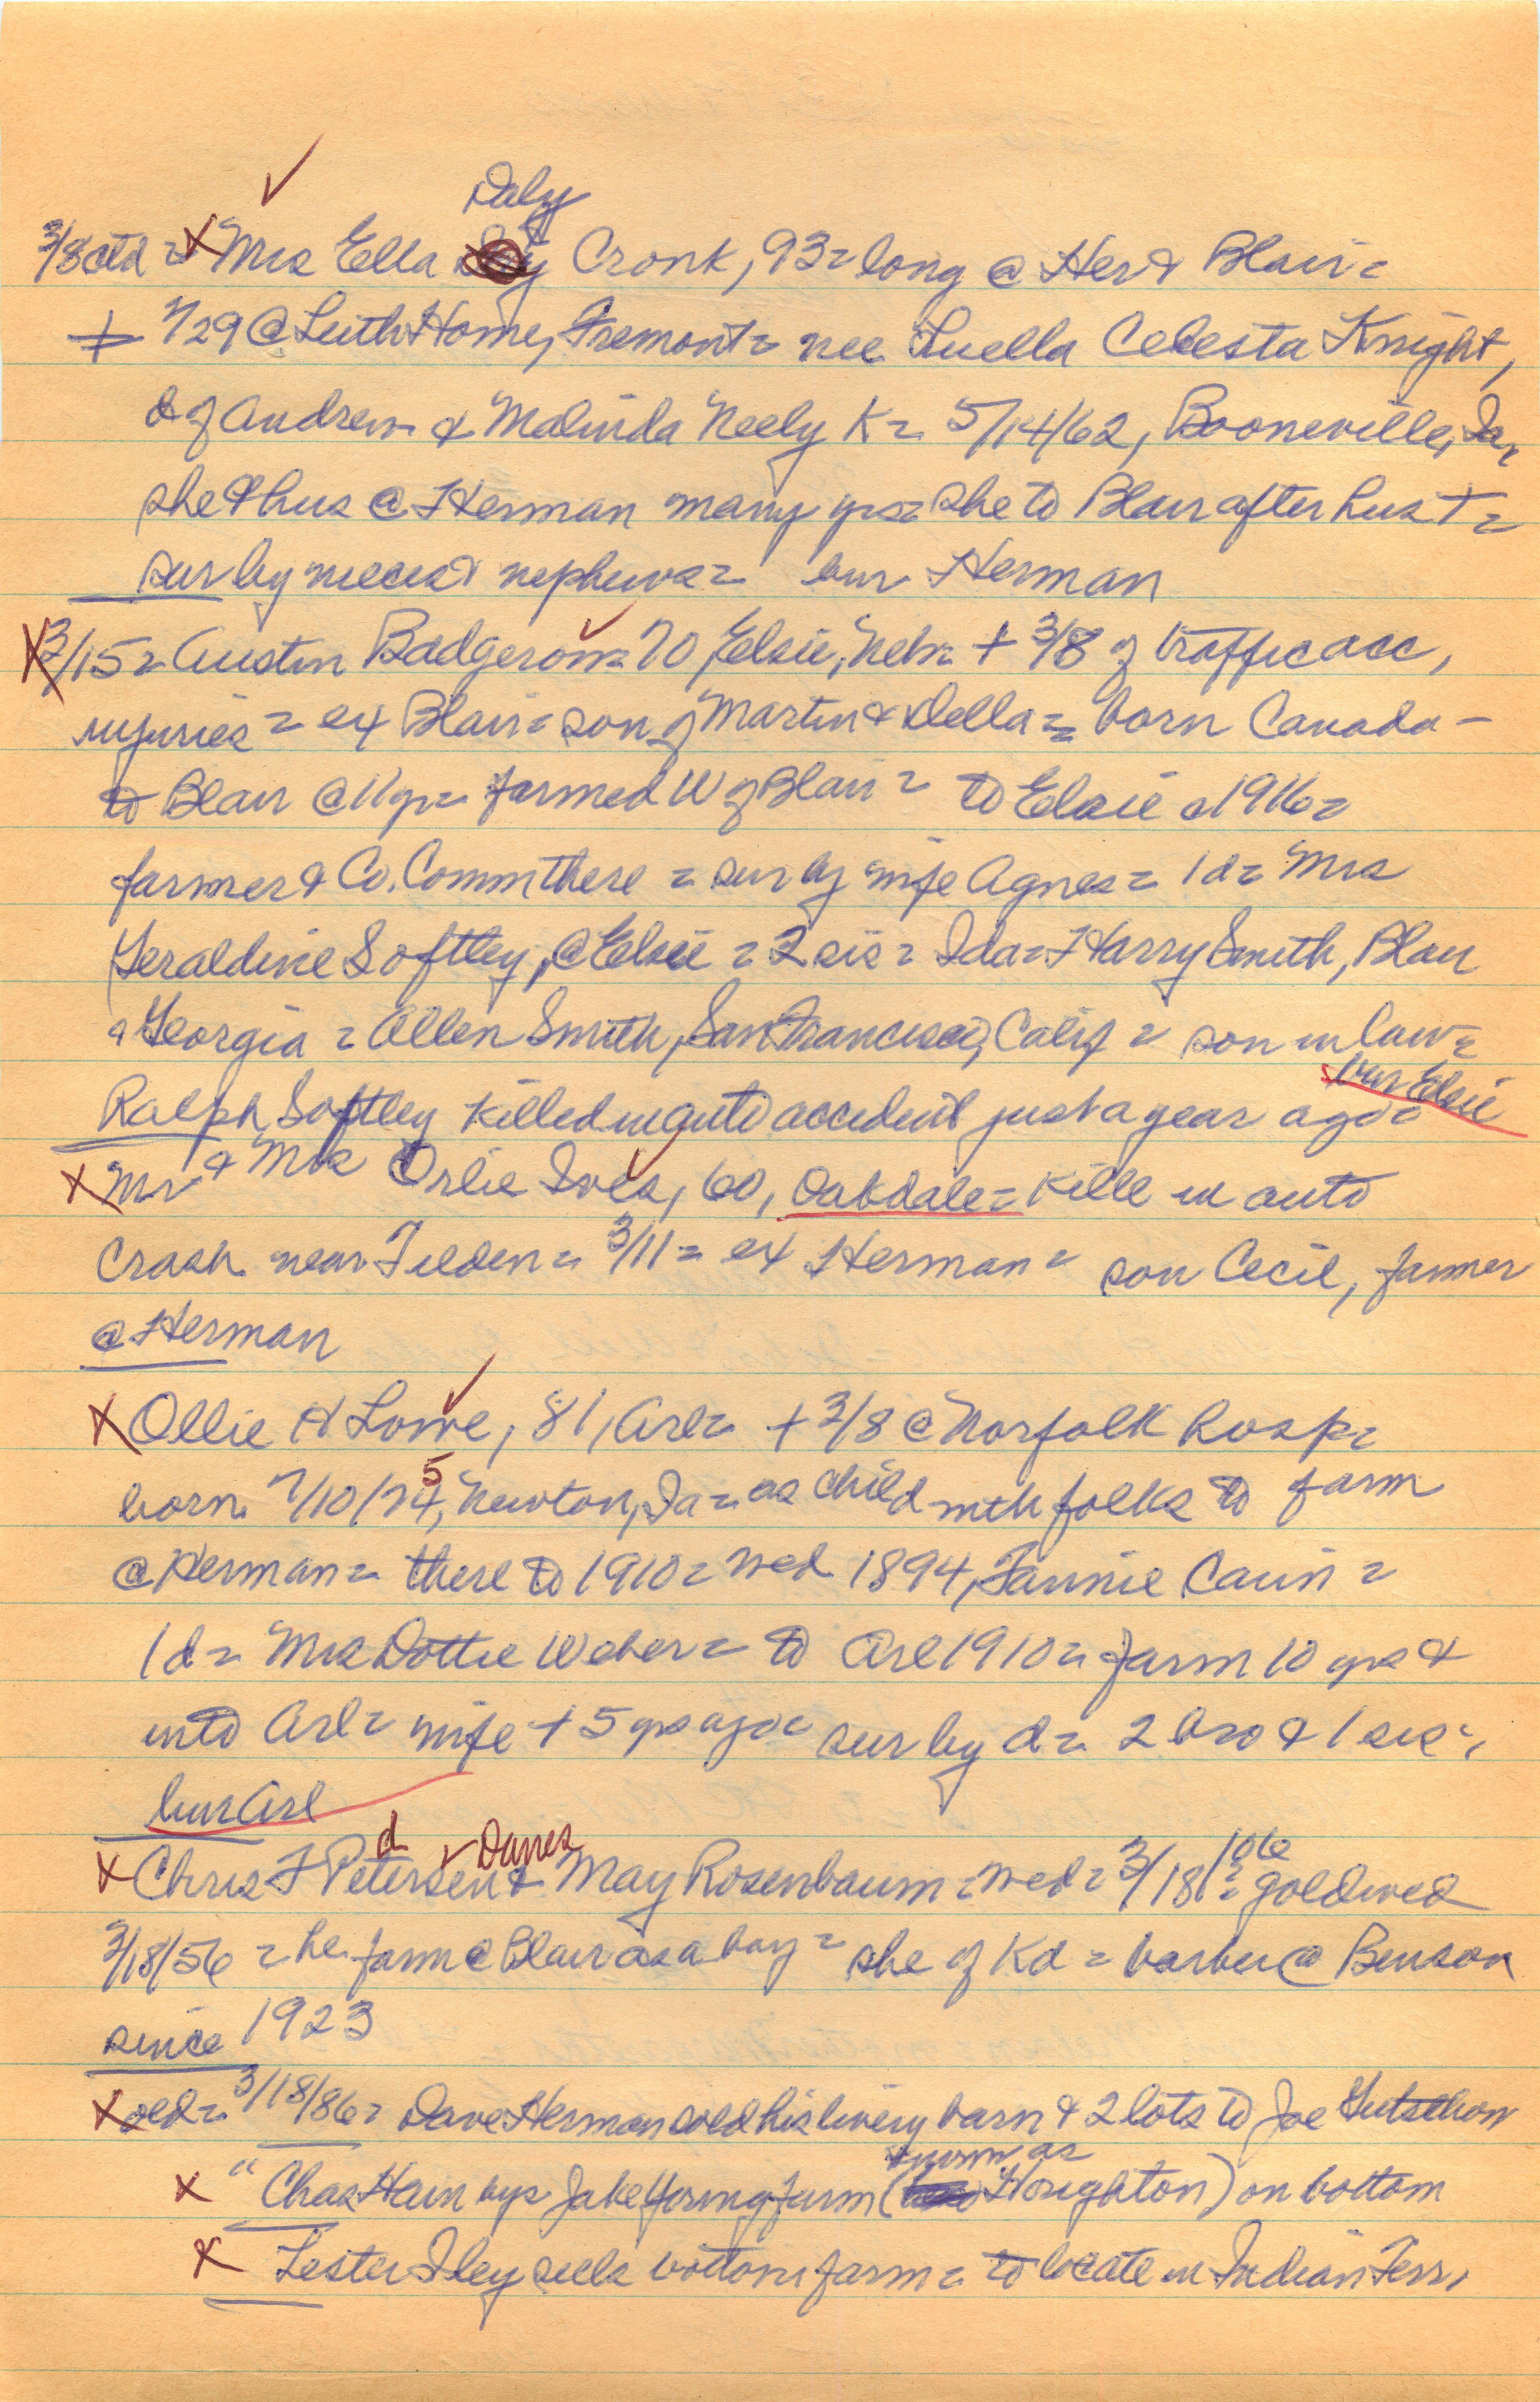 Daly
3/8 ctd = X Mrs Ella Cronk, 93 = long @ Her & Blair =
+ 1/29 @ Leith Home, Fremont = nee Luella Celesta Knight,
d of Andrew & Malinda Neely K = 5/14/62, Booneville, Ia,
she & hus @ Herman many yrs = she to Blair after hus + =
sur by nieces & nephews = bur Herman
X 3/15 = Austin Badgerow = 70, Elsie, Neb = + 3/8 of traffic acc,
injuries = ex Blair = son of Martin & Della = born Canada -
to Blair @ 11 yr = farmed W of Blair = to Elsie c1916 =
farmer & Co. Comm there = sur by wife Agnes = 1 d = Mrs
Geraldine Softley, @ Elsie = 2 sis = Ida = Harry Smith, Blair
& Georgia = Allen Smith, San Francisco, Calif = son in law =
Ralph Softley killed in auto accident just a year ago = bur Elsie
X Mr & Mrs Orlie Ives, 60, Oakdale = kille in auto
crash near Tilden = 3/11 = ex Herman = son Cecil, farmer
@ Herman
X Ollie H Lowe, 81, Arl = + 3/8 @ Norfolk hosp =
born 7/10/74, 5 Newton, Ia = as child with folks to farm
@ Herman = there to 1910 = wed 1894, Fannie Cain =
1 d = Mrs Dottie Weber = to Arl 1910 = farm 10 yrs &
into Arl = wife + 5 yrs ago = sur by d = 2 bro & 1 sis =
bur Arl
d Danes
X Chris F Petersen & May Rosenbaum = wed = 3/18/06 = gold wed
3/18/56 = he farm @ Blair as a boy = she of Kd = barber @ Benson
since 1923
X old = 3/18/86 = Dave Herman sold his livery barn & 2 lots to Joe Gutschow
known as
X " Chas Hain buys Jake Young farm ( Houghton) on bottom
X Lester Iley sells bottom farm = to locate in Indian Terr,